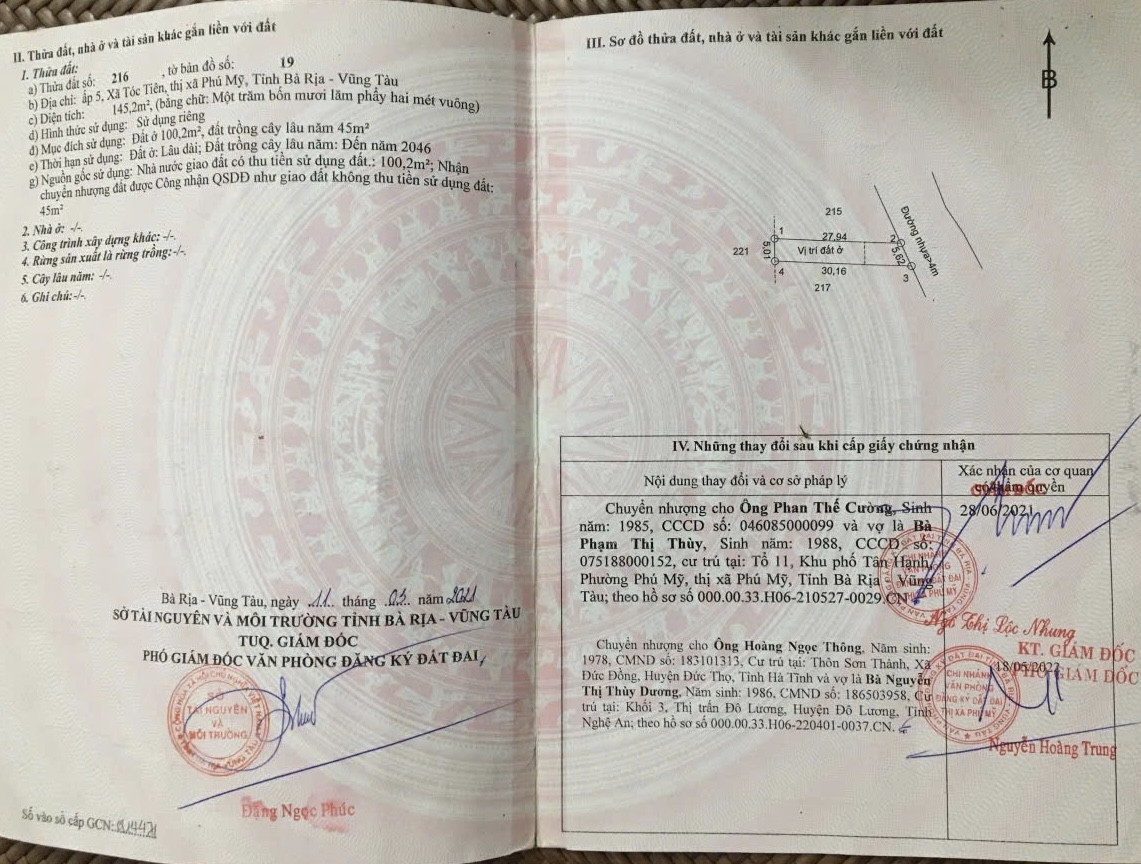 II. Thửa đất, nhà ở và tài sản khác gắn liền với đất
1. Thửa đất:
a) Thửa đất số: 216 , tờ bản đồ số: 19
b) Địa chỉ: ấp 5, Xã Tóc Tiên, thị xã Phú Mỹ, Tỉnh Bà Rịa - Vũng Tàu
c) Diện tích: 145,2m², (bằng chữ: Một trăm bốn mươi lăm phẩy hai mét vuông)
d) Hình thức sử dụng: Sử dụng riêng
đ) Mục đích sử dụng: Đất ở 100,2m², đất trồng cây lâu năm 45m²
e) Thời hạn sử dụng: Đất ở: Lâu dài; Đất trồng cây lâu năm: Đến năm 2046
g) Nguồn gốc sử dụng: Nhà nước giao đất có thu tiền sử dụng đất.: 100,2m²; Nhận
chuyển nhượng đất được Công nhận QSDĐ như giao đất không thu tiền sử dụng đất:
45m²
2. Nhà ở: -/-.
3. Công trình xây dựng khác: -/-.
4. Rừng sản xuất là rừng trồng:-/-.
5. Cây lâu năm: -/-.
6. Ghi chú:-/-.
Bà Rịa - Vũng Tàu, ngày 11 tháng 03 năm 2021
SỞ TÀI NGUYÊN VÀ MÔI TRƯỜNG TỈNH BÀ RỊA - VŨNG TÀU
TUQ. GIÁM ĐỐC
PHÓ GIÁM ĐỐC VĂN PHÒNG ĐĂNG KÝ ĐẤT ĐAI
SỞ
TÀI NGUYÊN
VÀ
MÔI TRƯỜNG
Đặng Ngọc Phúc
Số vào sổ cấp GCN:
III. Sơ đồ thửa đất, nhà ở và tài sản khác gắn liền với đất
B
215
1
27,94
2
221
5,01
Vị trí đất ở
5,62
Đường nhựa>4m
4
30,16
3
217
IV. Những thay đổi sau khi cấp giấy chứng nhận
Nội dung thay đổi và cơ sở pháp lý
Xác nhận của cơ quan
có thẩm quyền
GIÁM ĐỐC
Chuyển nhượng cho Ông Phan Thế Cường, Sinh
năm: 1985, CCCD số: 046085000099 và vợ là Bà
Phạm Thị Thùy, Sinh năm: 1988, CCCD số:
075188000152, cư trú tại: Tổ 11, Khu phố Tân Hạnh,
Phường Phú Mỹ, thị xã Phú Mỹ, Tỉnh Bà Rịa - Vũng
Tàu; theo hồ sơ số 000.00.33.H06-210527-0029.CN
28/06/2021
Ngô Thị Lộc Nhung
Chuyển nhượng cho Ông Hoàng Ngọc Thông, Năm sinh:
1978, CMND số: 183101313, Cư trú tại: Thôn Sơn Thành, Xã
Đức Đồng, Huyện Đức Thọ, Tỉnh Hà Tĩnh và vợ là Bà Nguyễn
Thị Thùy Dương, Năm sinh: 1986, CMND số: 186503958, Cư
trú tại: Khối 3, Thị trấn Đô Lương, Huyện Đô Lương, Tỉnh
Nghệ An; theo hồ sơ số 000.00.33.H06-220401-0037.CN.
KT. GIÁM ĐỐC
18/05/2022
PHÓ GIÁM ĐỐC
CHI NHÁNH
VĂN PHÒNG
ĐĂNG KÝ ĐẤT ĐAI
THỊ XÃ PHÚ MỸ
Nguyễn Hoàng Trung